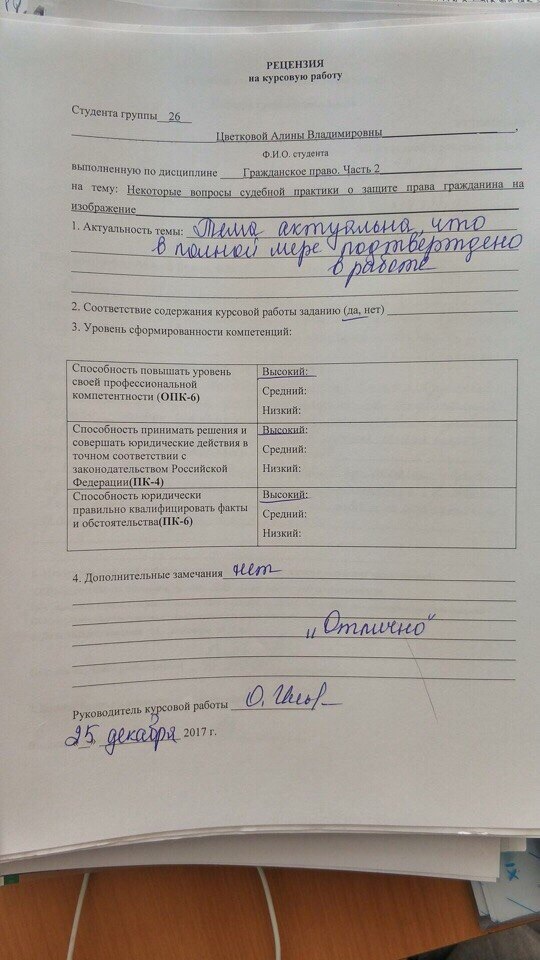 РЕЦЕНЗИЯ
на курсовую работу
Студента группы 26
Цветковой Алины Владимировны
Ф.И.О. студента
выполненную по дисциплине Гражданское право. Часть 2
на тему: Некоторые вопросы судебной практики о защите права гражданина на
изображение
1. Актуальность темы: Тема актуальна, что
в полной мере подтверждено
в работе
2. Соответствие содержания курсовой работы заданию (да, нет)
3. Уровень сформированности компетенций:
Способность повышать уровень
своей профессиональной
компетентности (ОПК-6)
Высокий:
Средний:
Низкий:
Способность принимать решения и
совершать юридические действия в
точном соответствии с
законодательством Российской
Федерации(ПК-4)
Высокий:
Средний:
Низкий:
Способность юридически
правильно квалифицировать факты
и обстоятельства(ПК-6)
Высокий:
Средний:
Низкий:
4. Дополнительные замечания нет
„Отлично“
Руководитель курсовой работы
25 декабря 2017 г.